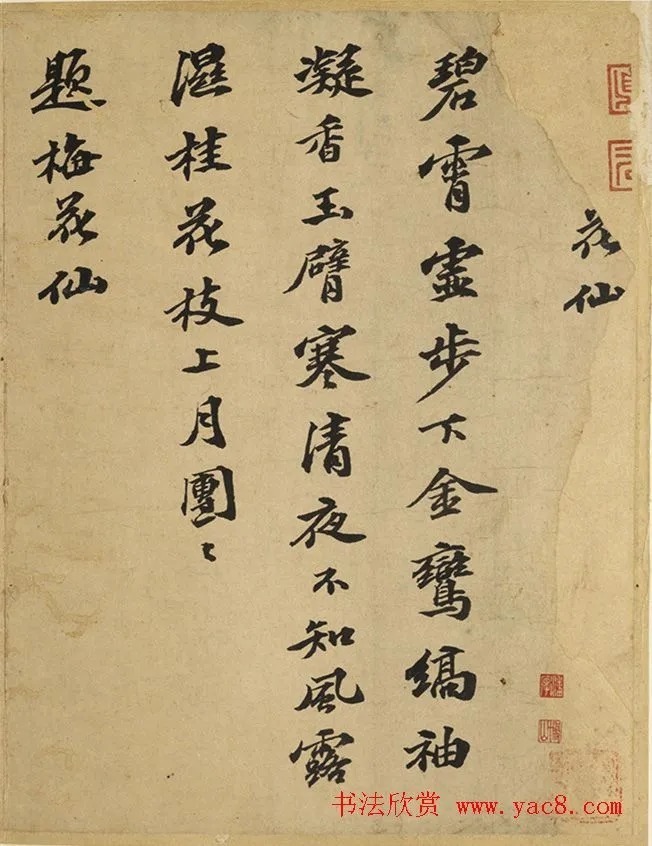 花仙
碧霄虛步下金鸞縞袖
凝香玉臂寒清夜不知風露
濕桂花枝上月團〻
題梅花仙
书法欣赏 www.yac8.com